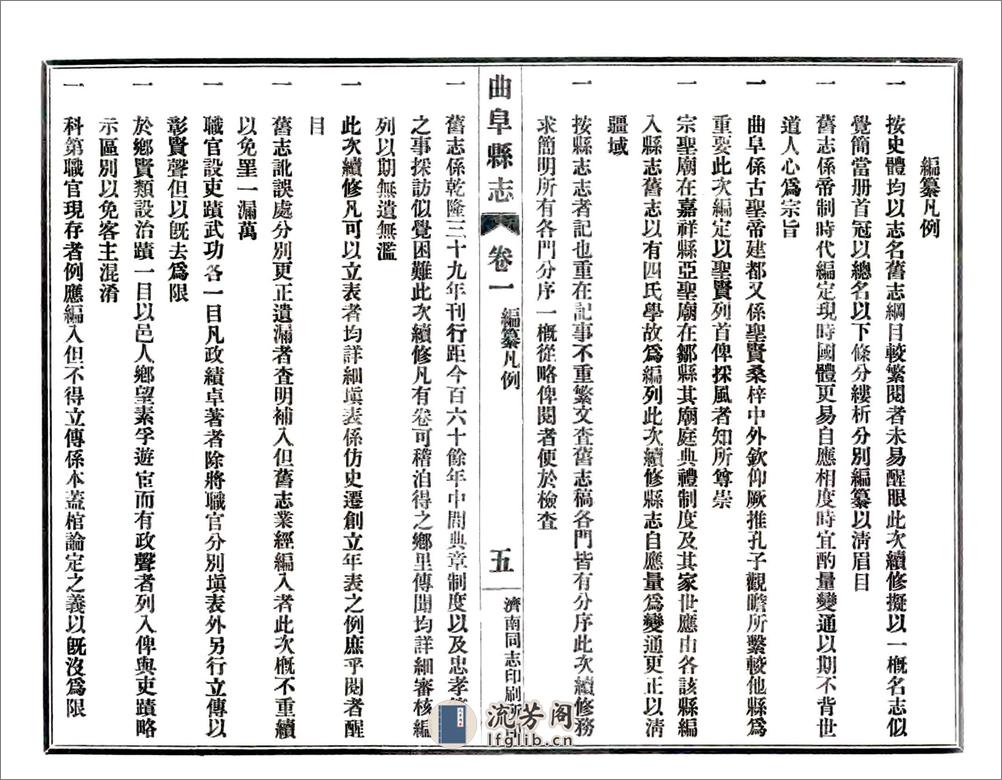 編纂凡例
一 按史體均以志名舊志綱目較繁閱者未易醒眼此次續修擬以一概名志似
覺簡當册首冠以總名以下條分縷析分別編纂以清眉目
一 舊志係帝制時代編定現時國體更易自應相度時宜酌量變通以期不背世
道人心爲宗旨
一 曲阜係古聖帝建都又係聖賢桑梓中外欽仰厥推孔子觀瞻所繫較他縣爲
重要此次編定以聖賢列首俾採風者知所尊崇
一 宗聖廟在嘉祥縣亞聖廟在鄒縣其廟庭典禮制度及其家世應由各該縣編
入縣志舊志以有四氏學故爲編列此次續修縣志自應量爲變通更正以清
疆域
一 按縣志志者記也重在記事不重繁文查舊志稿各門皆有分序此次續修務
求簡明所有各門分序一概從略俾閱者便於檢查
曲阜縣志 卷一 編纂凡例 五 濟南同志印刷所
一 舊志係乾隆三十九年刊行距今百六十餘年中間典章制度以及忠孝
之事採訪似覺困難此次續修凡有卷可稽洎得之鄉里傳聞均詳細審核編
列以期無遺無濫
一 此次續修凡可以立表者均詳細塡表係仿史遷創立年表之例庶乎閱者醒
目
一 舊志訛誤處分別更正遺漏者查明補入但舊志業經編入者此次概不重續
以免罣一漏萬
一 職官設吏蹟武功各一目凡政績卓著者除將職官分別塡表外另行立傳以
彰賢聲但以旣去爲限
一 於鄉賢類設治蹟一目以邑人鄉望素孚遊宦而有政聲者列入俾與吏蹟略
示區別以免客主混淆
一 科第職官現存者例應編入但不得立傳係本蓋棺論定之義以旣沒爲限
流芳阁
lfglib.cn